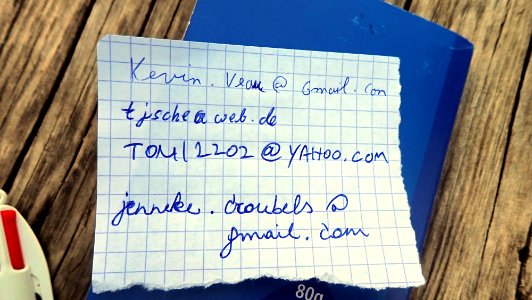 Kevin.Veau@Gmail.con
tjsche@web.de
TOM12202@YAHOO.COM
jenneke.droubels@
gmail.com
80g